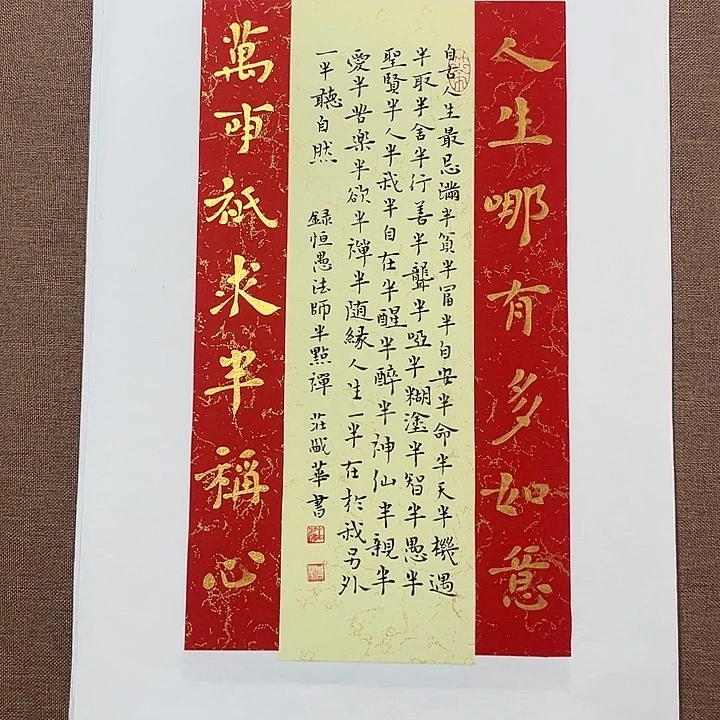 人生哪有多如意
自古人生最忌滿半貧半富半自安半命半天半機遇
半取半舍半行善半聾半啞半糊塗半智半愚半
聖賢半人半我半自在半醒半醉半神仙半親半
愛半苦樂半欲半禪半随緣人生一半在於我另外
一半聽自然 録恒愚法師半點禪 莊華書
萬事祇求半稱心